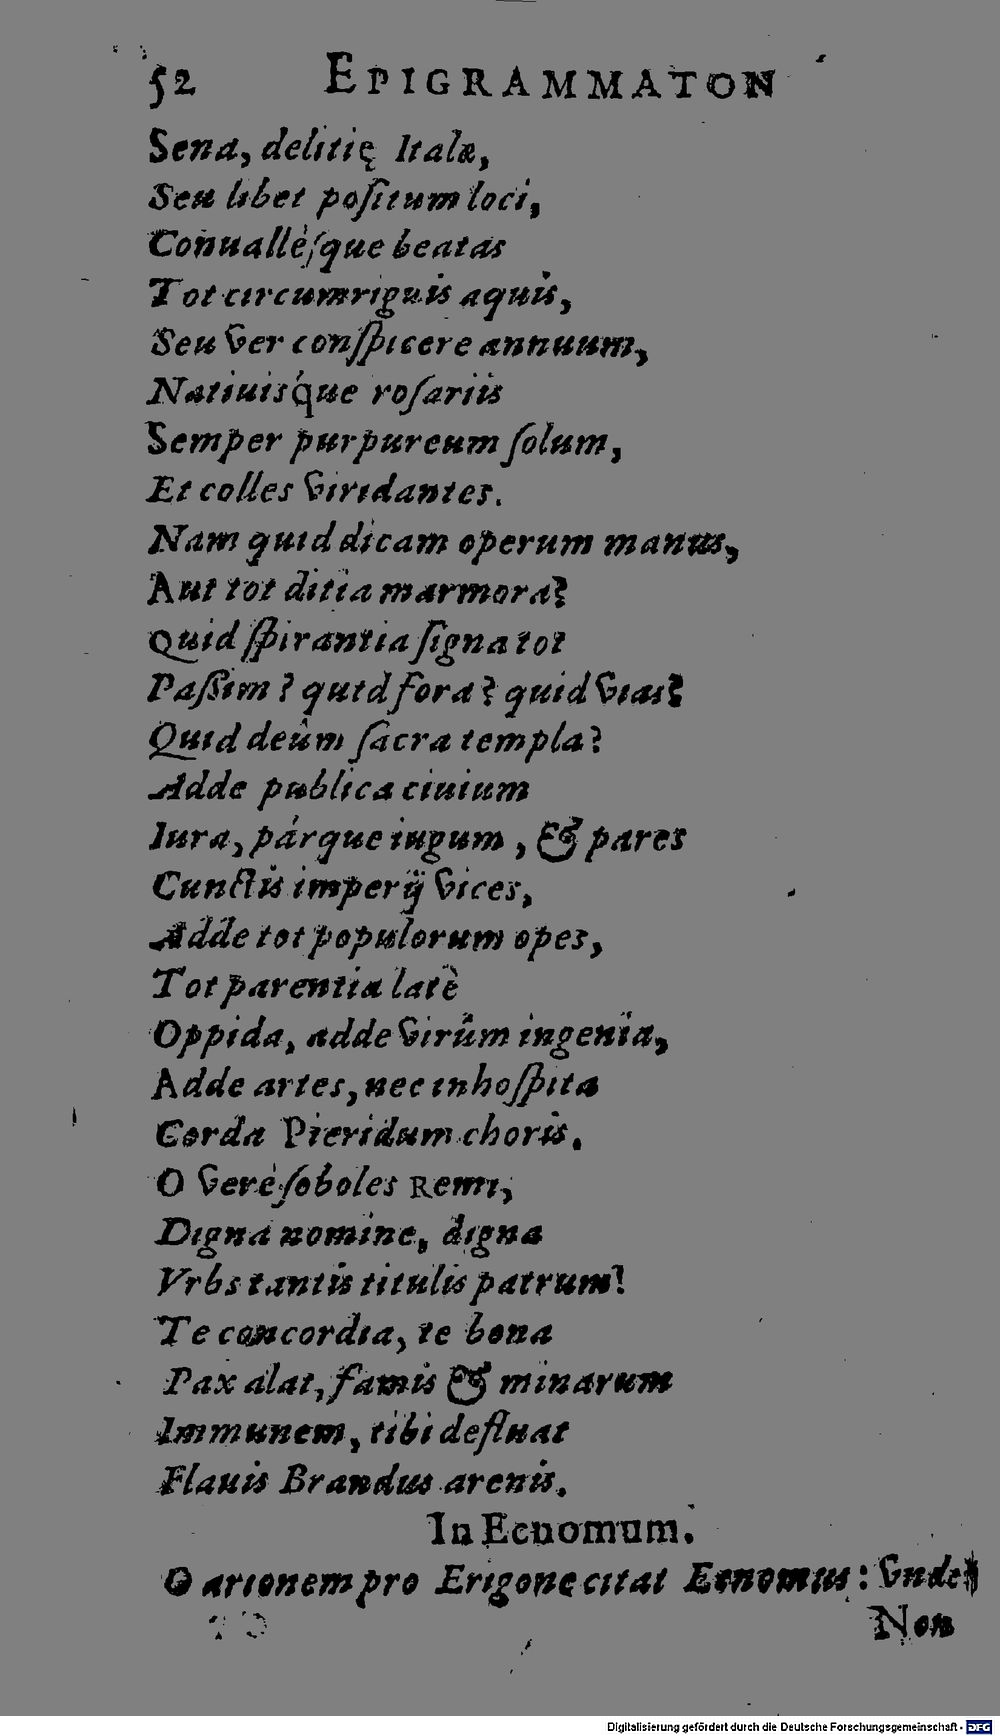 52 EPIGRAMMATON
Sena, delitię Italæ,
Seu libet poſitum loci,
Conuallèſque beatas
Tot circumriguis aquis,
Seu ver conſpicere annuum,
Natiuisq́ue roſariis
Semper purpureum ſolum,
Et colles viridantes.
Nam quid dicam operum manus,
Aut tot ditia marmora?
Quid ſpirantia ſigna tot
Paſſim? quid fora? quid vias?
Quid deûm ſacra templa?
Adde publica ciuium
Iura, párque iugum, & pares
Cunctis imperij vices,
Adde tot populorum opes,
Tot parentia latè
Oppida, adde virûm ingenia,
Adde artes, nec inhoſpita
Corda Pieridum choris.
O verè ſoboles Remi,
Digna nomine, digna
Vrbs tantis titulis patrum!
Te concordia, te bona
Pax alat, famis & minarum
Immunem, tibi defluat
Flauis Brandus arenis.
In Ecnomum.
Oarionem pro Erigone citat Ecnomus: vnde?
Non
Digitalisierung gefördert durch die Deutsche Forschungsgemeinschaft - DFG